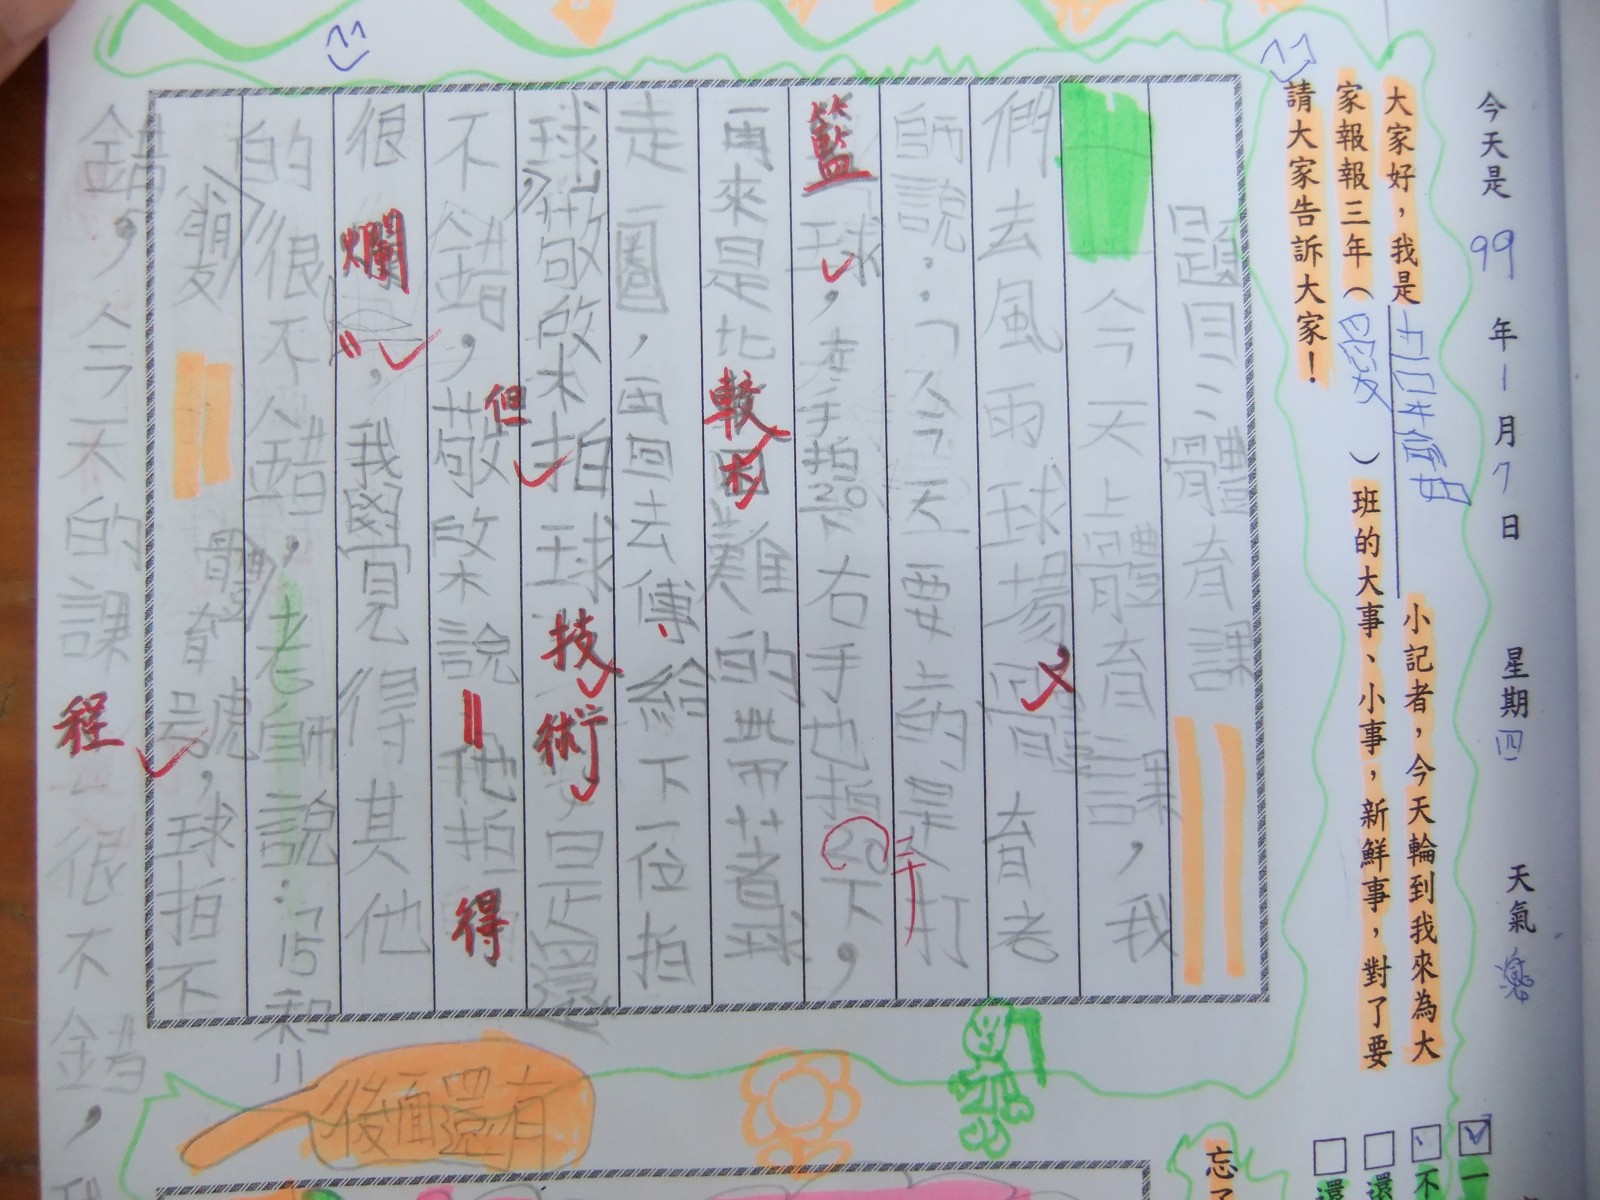 今天是 99 年 1 月 7 日 星期 四 天氣
大家好，我是 小記者，今天輪到我來為大
家報報三年（ 忠 ）班的大事、小事，新鮮事，對了要
請大家告訴大家！
題目：體育課
今天上體育課，我
們去風雨球場 育老
師說：「今天要上的是打
籃球，左手拍20下右手也拍20下，
再來是比較困難的 著球
走一圈，再回去傳給下一位拍
球，敬啟木拍球技術， 是還
不錯，但敬啟木說他拍得
很爛，我覺得其他
的很不錯，老師說：15和11
號 體育 ，球拍不
錯，今天的課程 很不錯，
後面還有
忘
一
不
還
還